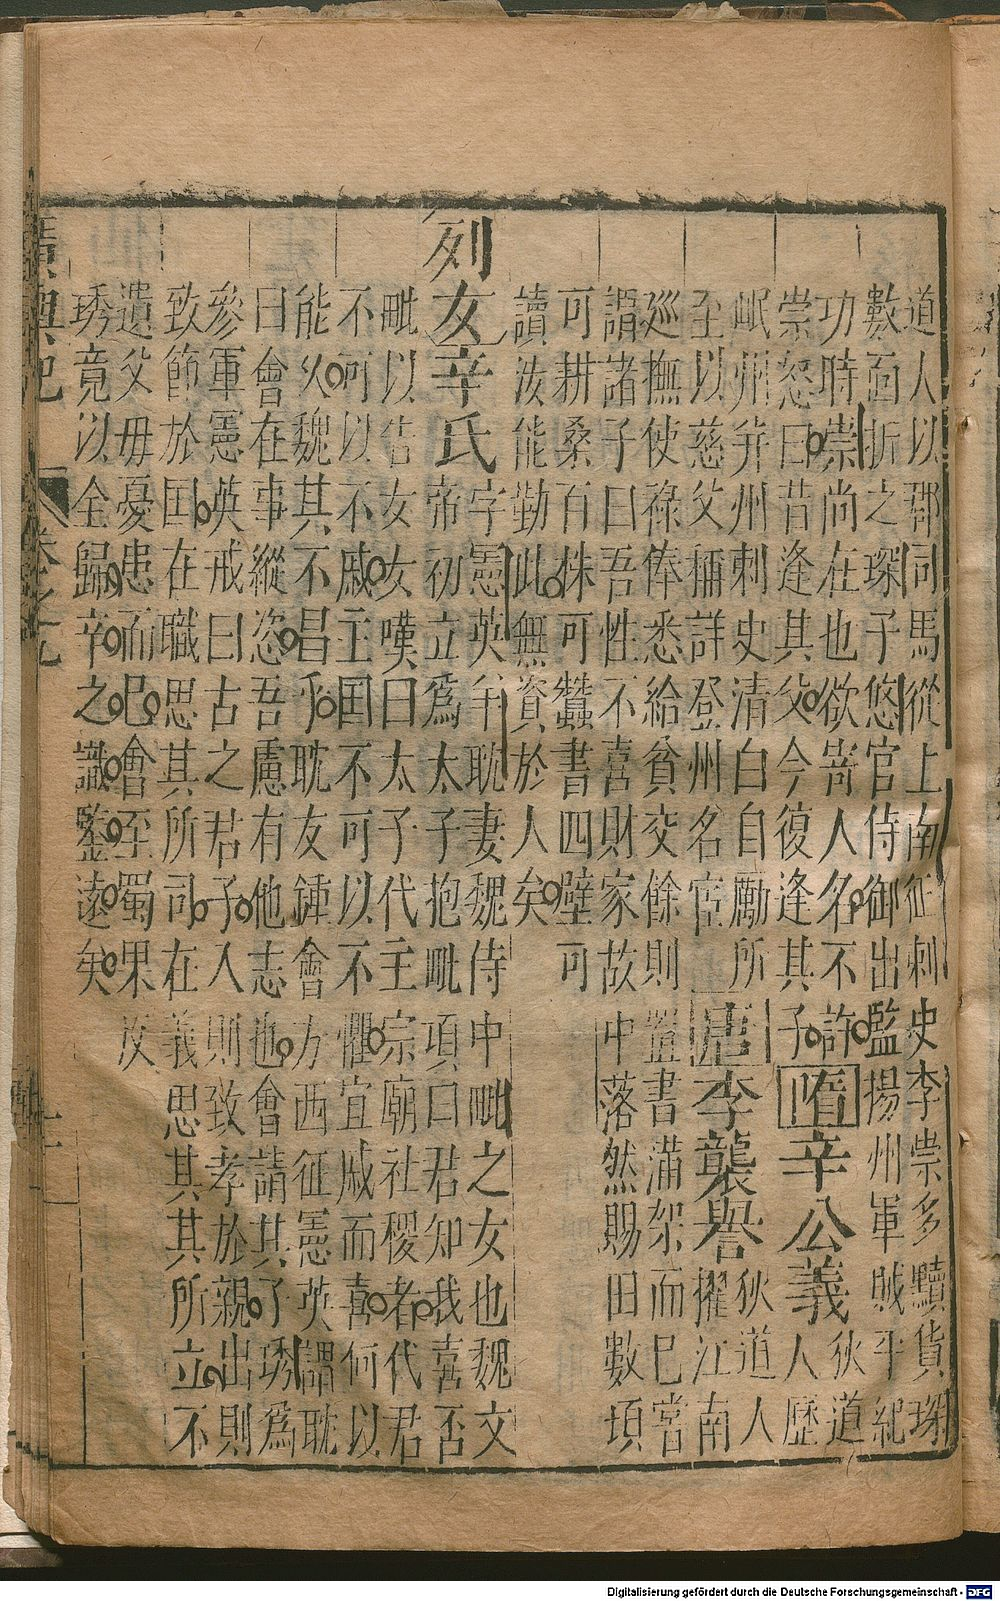 道人以郡司馬從上南征刺史李崇多黷貨琛
數面折之琛子悠官侍御出監揚州軍賊平紀
功時崇尚在也欲寄人名不許
崇怒曰昔逢其父今復逢其子
隋辛公義
狄道
人歷
岷州并州刺史清白自勵所
至以慈父稱詳登州名宦
唐李襲譽
狄道人
擢江南
巡撫使祿俸悉給貧交餘則置書滿架而已嘗
謂諸子曰吾性不喜財家故中落然賜田數頃
可耕桑百株可蠶書四壁可
讀汝能勤此無資於人矣
列女辛氏
字憲英羊耽妻魏侍中毗之女也魏文
帝初立為太子抱毗項曰君知我喜否
毗以告女女嘆曰太子代主宗廟社稷者代君
不可以不戚主国不可以不懼宜戚而喜何以
能久魏其不昌乎耽友鍾會方西征憲英謂耽
曰會在事縱恣吾慮有他志也會請其子琇為
參軍憲英戒曰古之君子入則致孝於親出則
致節於国在職思其所司在義思其所立不
遺父母憂患而已會至蜀果反
琇竟以全歸辛之識鑒遠矣
廣輿記
卷之九
Digitalisierung gefördert durch die Deutsche Forschungsgemeinschaft - DFG